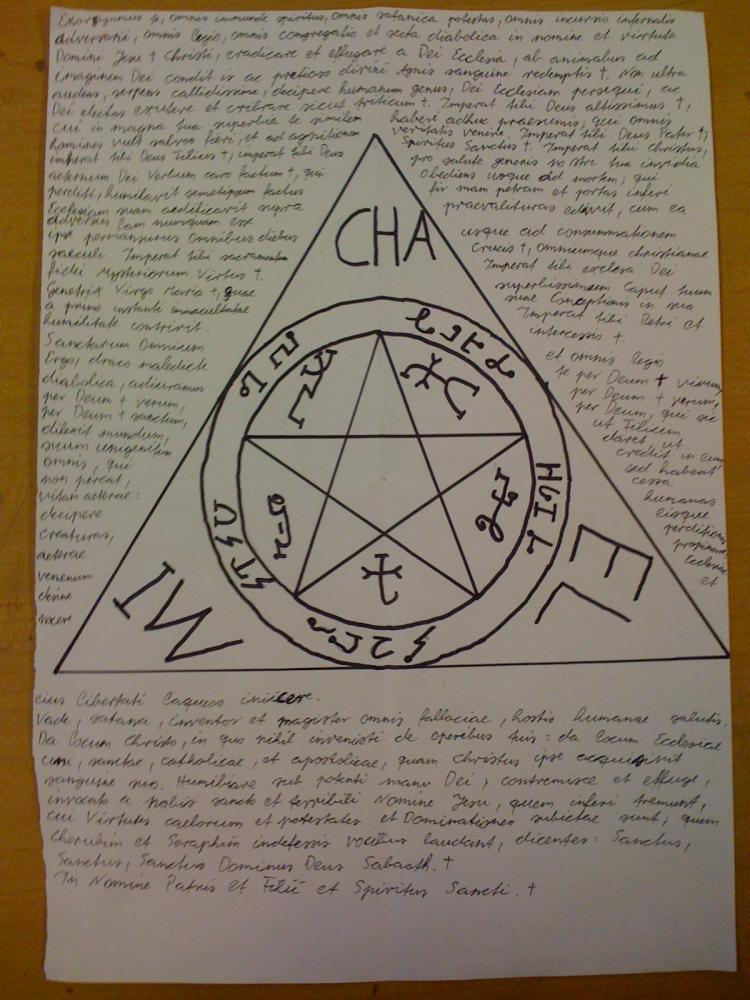 Exorcizamus te, omnis immunde spiritus, omnis satanica potestas, omnis incursio infernalis
adversarii, omnis legio, omnis congregatio et secta diabolica in nomine et virtute
Domini Jesu † Christi, eradicare et effugare a Dei Ecclesia, ab animabus ad
imaginem Dei condit is ac pretioso divini Agnis sanguine redemptis †. Non ultra
audeas, serpens callidissime, decipere humanum genus, Dei Ecclesiam persequi, ac
Dei electos excutere et cribrare sicut triticum †. Imperat tibi Deus altissimus †,
cui in magna tua superbia te similem
haberi adhuc praesumis; qui omnis
homines vult salvos fieri, et ad agnitionem
veritatis venire. Imperat tibi Deus Pater †;
imperat tibi Deus Filius †; imperat tibi Deus
Spiritus Sanctus †. Imperat tibi christus,
aeternum Dei Verbum caro factum †, qui
pro salute generis nostri tua invidia
perditi, humiliavit semetipsum factus
obediens usque ad mortem; qui
Ecclesiam suam aedificavit supra
fir mam petram et portas inferi
adversus eam nunquam esse
praevalituras edixit, cum ea
ipse permansurus omnibus diebus
usque ad consummationem
saeculi. Imperat tibi sacramentum
Crucis †, omniumque christianae
fidei Mysteriorum Virtus †.
Imperat tibi excelsa Dei
Genetrix Virgo Maria †, quae
superbissimum Caput tuum
a primo instanti immaculatae
suae Conceptionis in sua
humilitate contrivit.
Imperat tibi Petri et
Sanctorum Omnium
intercessio †.
CHA
Ergo, draco maledicte
et omnis legio
diabolica, adiuramus
te per Deum † vivum,
per Deum † verum,
per Deum † verum,
per Deum † sanctum,
per Deum, qui sic
dilexit mundum,
ut Filium
suum unigenitum
daret, ut
omnis, qui
credit in eum
non pereat,
sed habeat
vitam aeternae:
cessa
decipere
humanas
creaturas,
eisque
aeternae
perditionis
venenum
propinare
desine
Ecclesiae
nocere
et
MI
EL
eius libertati laqueos iniicere.
Vade, satana, inventor et magister omnis fallaciae, hostis humanae salutis.
Da locum Christo, in quo nihil invenisti de operibus tuis: da locum Ecclesiae
uni, sanctae, catholicae, et apostolicae, quam christus ipse acquisivit
sanguine suo. Humiliare sub potenti manu Dei; contremisce et effuge,
invocato a nobis sancto et terribili Nomine Jesu, quem inferi tremunt,
cui Virtutes caelorum et potestates et Dominationes subiectae sunt; quem
cherubim et Seraphim indefessis vocibus laudant, dicentes: Sanctus,
Sanctus, Sanctus Dominus Deus Sabaoth. †
In Nomine Patris et Filii et Spiritus Sancti. †